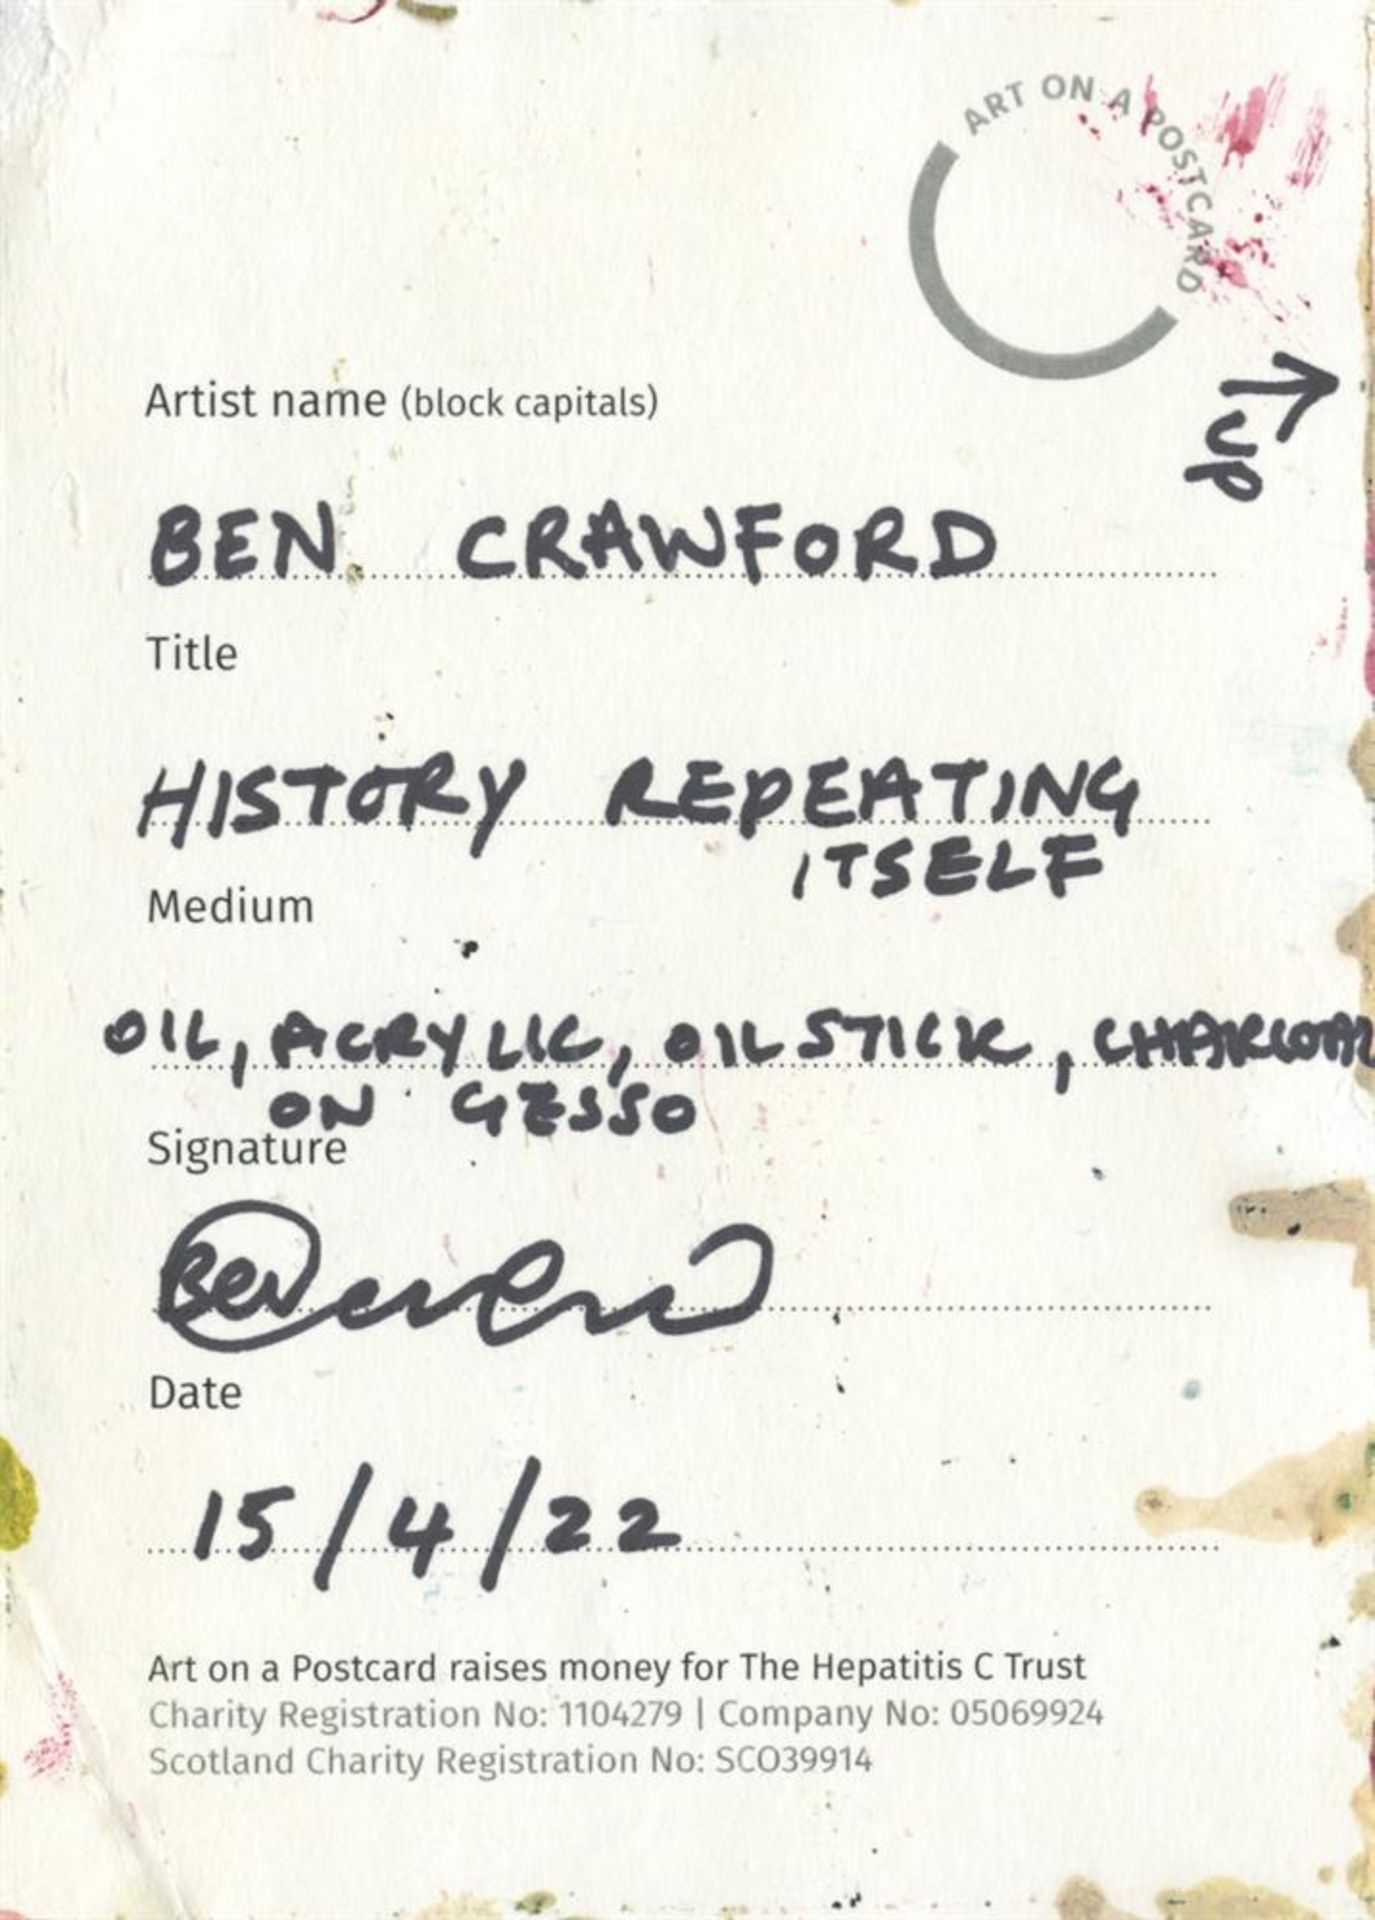 ART ON A POSTCARD
UP
Artist name (block capitals)
BEN CRAWFORD
Title
HISTORY REPEATING
ITSELF
Medium
OIL, ACRYLIC, OIL STICK, CHARCOAL
ON GESSO
Signature
BEN
Date
15/4/22
Art on a Postcard raises money for The Hepatitis C Trust
Charity Registration No: 1104279 | Company No: 05069924
Scotland Charity Registration No: SCO39914